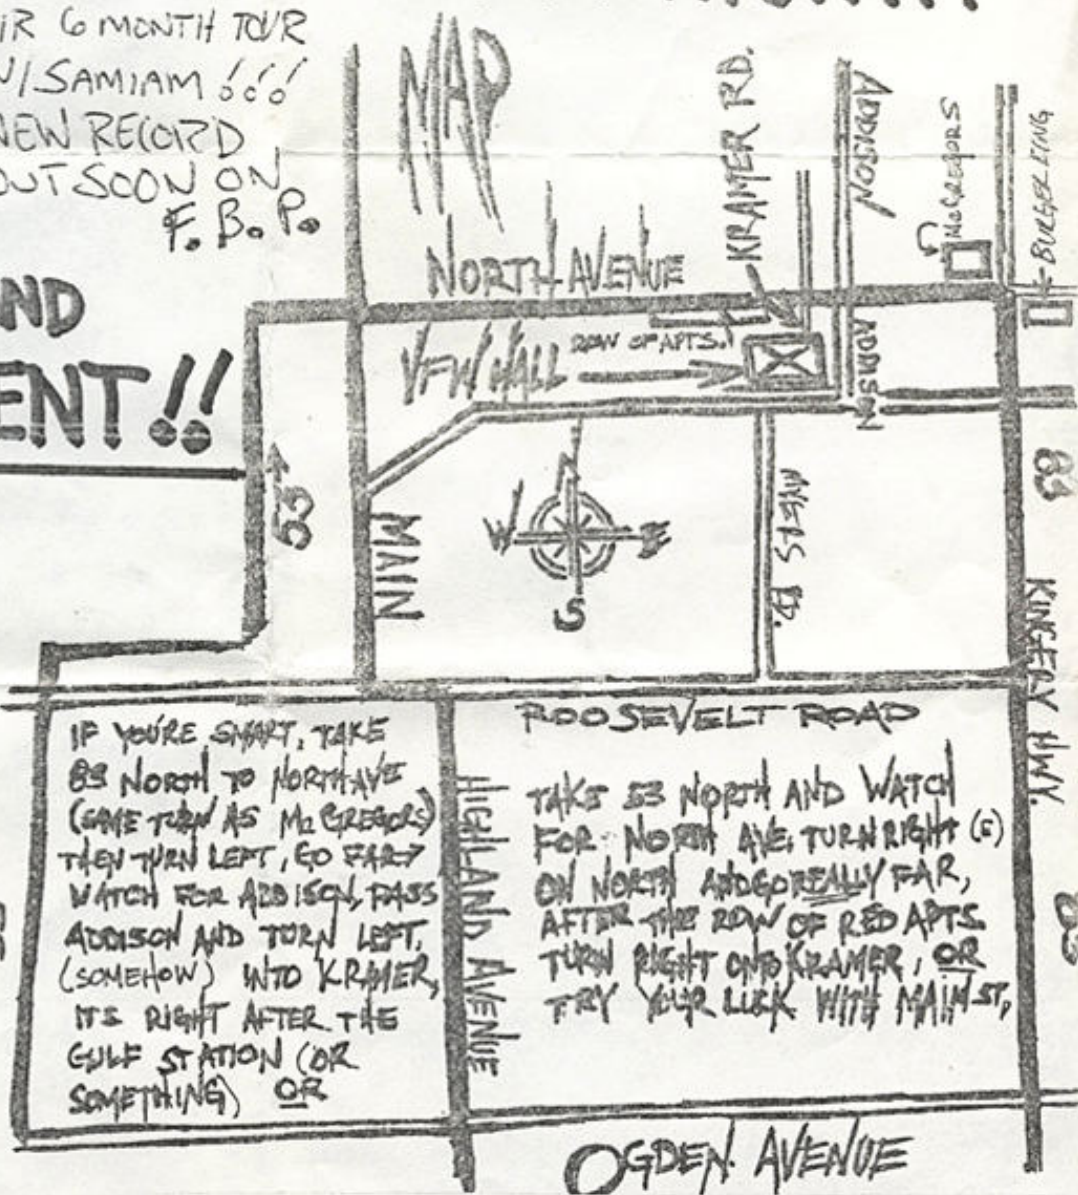 IR 6 MONTH TOUR
W/SAMIAM !!!
NEW RECORD
OUT SOON ON
F. B. P.
ND
ENT!!
MAP
KRAMER RD.
ADDISON
McGREGORS
← BURGER KING
NORTH AVENUE
ROW OF APTS.
VFW HALL
ADDISON
53
MAIN
N
W
E
S
RD.
83
KINGERY HWY.
83
ROOSEVELT ROAD
IF YOU'RE SMART, TAKE
83 NORTH TO NORTH AVE
(SAME TURN AS McGREGORS)
THEN TURN LEFT, GO FAR →
WATCH FOR ADDISON, PASS
ADDISON AND TURN LEFT,
(SOMEHOW) INTO KRAMER,
ITS RIGHT AFTER THE
GULF STATION (OR
SOMETHING) OR
HIGHLAND AVENUE
TAKE 53 NORTH AND WATCH
FOR NORTH AVE. TURN RIGHT (E)
ON NORTH AND GO REALLY FAR,
AFTER THE ROW OF RED APTS.
TURN RIGHT ONTO KRAMER, OR
TRY YOUR LUCK WITH MAIN ST,
OGDEN AVENUE